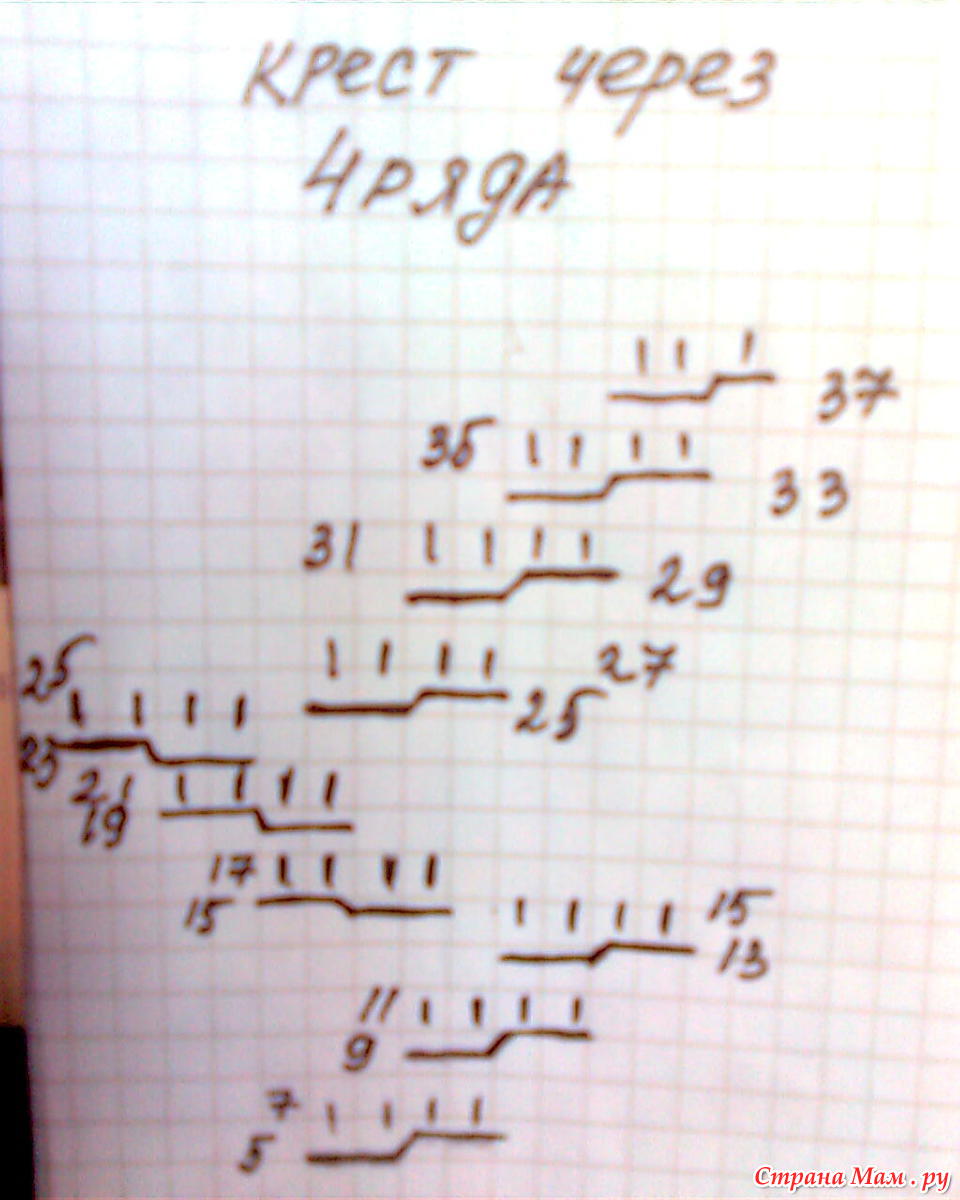 КРЕСТ через
4 РЯДА
37
35
33
31
29
27
25
25
23
21
19
17
15
15
13
11
9
7
5
Страна Мам . ру